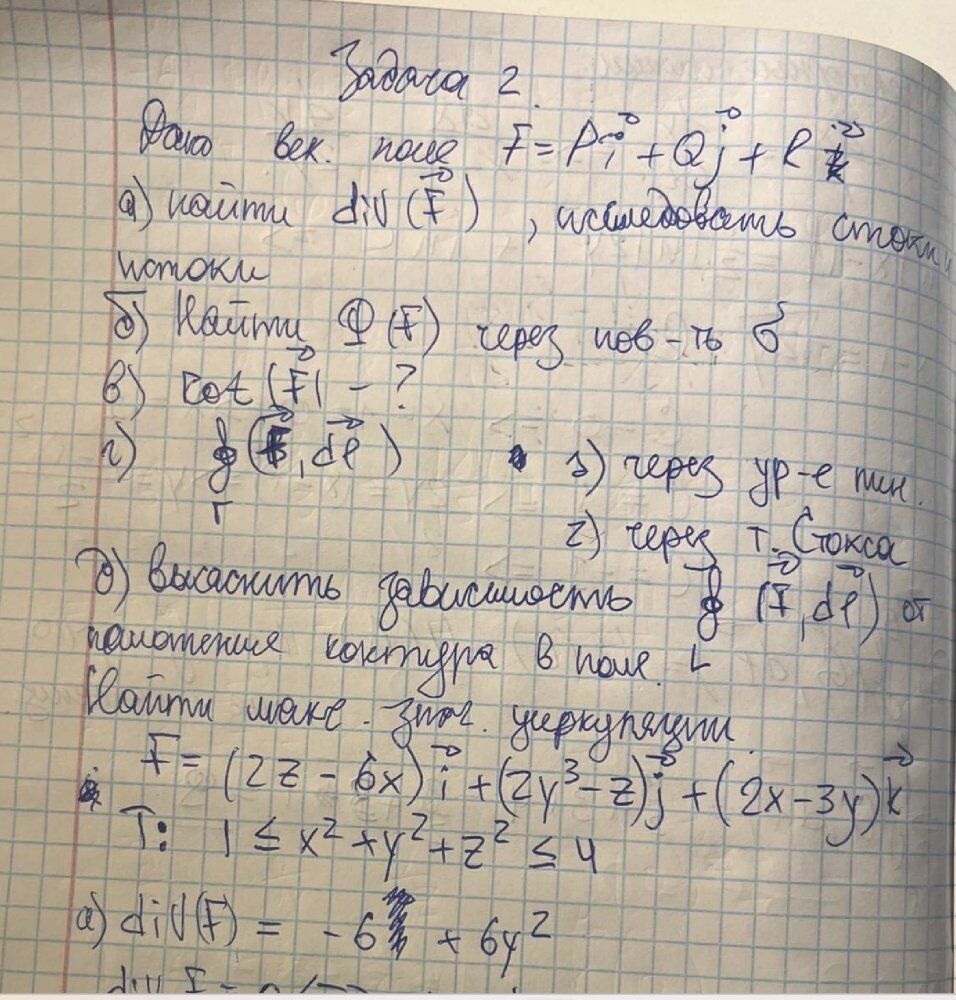 Задача 2.
Дано век. поле F = Pi + Qj + R k
а) найти div(F) , исследовать стоки и
истоки
б) Найти Ф(F) через пов-ть б
в) rot(F) - ?
г) ∮(F, dl) 1) через ур-е
Г 2) через т. Стокса
д) выяснить зависимость ∮ (F, dl) от
положения контура в поле. L
Найти макс. знач. циркуляции.
F = (2z - 6x) i + (2y³ - z) j + (2x - 3y) k
T: 1 ≤ x² + y² + z² ≤ 4
а) div(F) = - 6 + 6y²